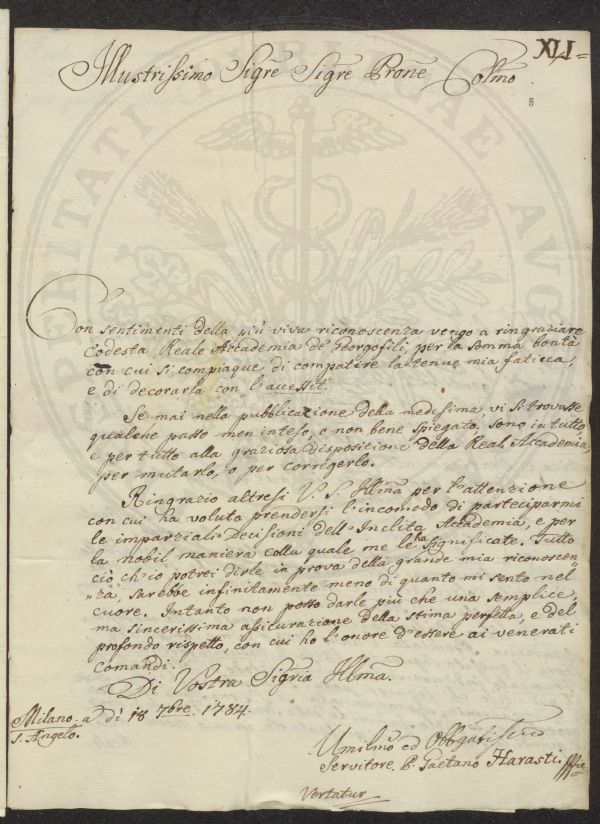 XLI=
Illustrissimo Sigre Sigre Prone Colmo
8
Con sentimenti della più viva riconoscenza vengo a ringraziare
codesta Reale Accademia de' Georgofili, per la somma bontà
con cui si compiaque di compatire la tenue mia fatica,
e di decorarla con l'accessit.
Se mai nella pubblicazione della medesima, vi si trovasse
qualche passo men inteso, o non bene spiegato. sono in tutto
e per tutto alla graziosa disposizione della Real Accademia
per mutarlo, o per corregerlo.
Ringrazio altresì V. S. Illma per l'attenzione
con cui ha voluto prendersi l'incomodo di parteciparmi
le imparziali Decisioni dell'Inclita Accademia, e per
la nobil maniera colla quale me le ha significate. Tutto
ciò ch'io potrei dirle in prova della grande mia riconoscen=
=za, sarebbe infinitamente meno di quanto mi sento nel
cuore. Intanto non posso darle più che una semplice,
ma sincerissima assicurazione della stima perfetta, e del
profondo rispetto, con cui ho l'onore d'essere ai venerati
comandi.
Di Vostra Sigria Illma.
Milano. a dì 18 7bre. 1784.
S. Angelo.
Umilmo ed Obbgatissimo
Servitore P. Gaetano Harasti.
Vertatur
CAUTE